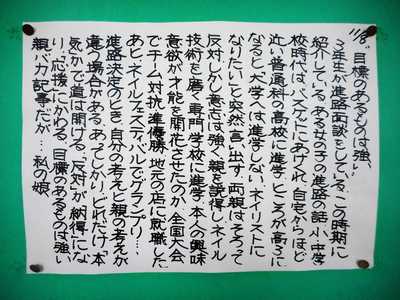 11/8 "目標のあるものは強い"
3年生が進路面談をしている。この時期に
紹介している、ある女の子の進路の話。小中学
校時代は、バスケットにあけくれ、自宅からほど
近い普通科の高校に進学。ところが、高3に
なると「大学へは進学しない。ネイリストに
なりたい」と突然、言い出す。両親はそろって
反対。しかし、意志は強く、親を説得し、ネイル
技術を磨く専門学校に進学。本人の興味
意欲が才能を開花させたのか、全国大会
でチーム対抗準優勝。地元の店に就職した
あと、ネイルフェスティバルでグランプリ…。
進路決定のとき、自分の考えと親の考えが
違う場合がある。あってしかり。どれだけ「本
気」かで道は開ける。「反対」が「納得」にな
り、「応援」にかわる。目標のあるものは強い。
親バカ記事だが…私の娘。